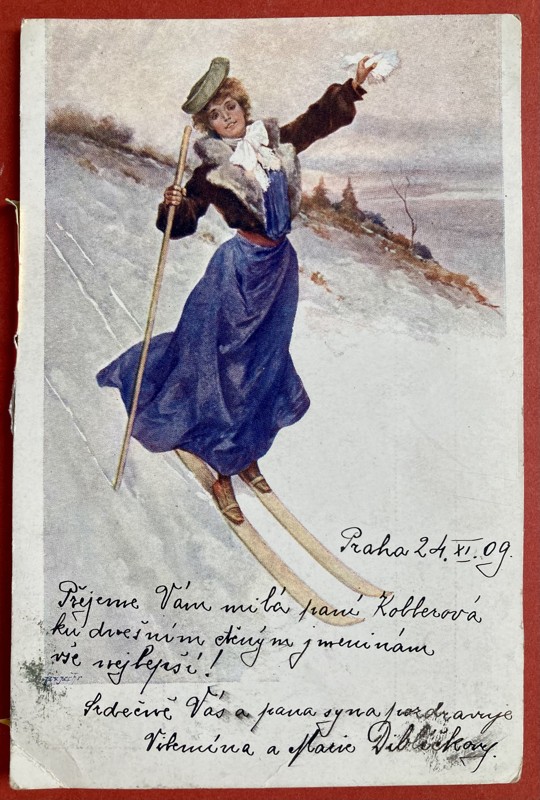 Praha 24. XI. 09.
Přejeme Vám milá paní Koblerová
ku dnešním ctěným jmeninám
vše nejlepší!
Srdečně Vás a pana syna pozdravuje
a Marie